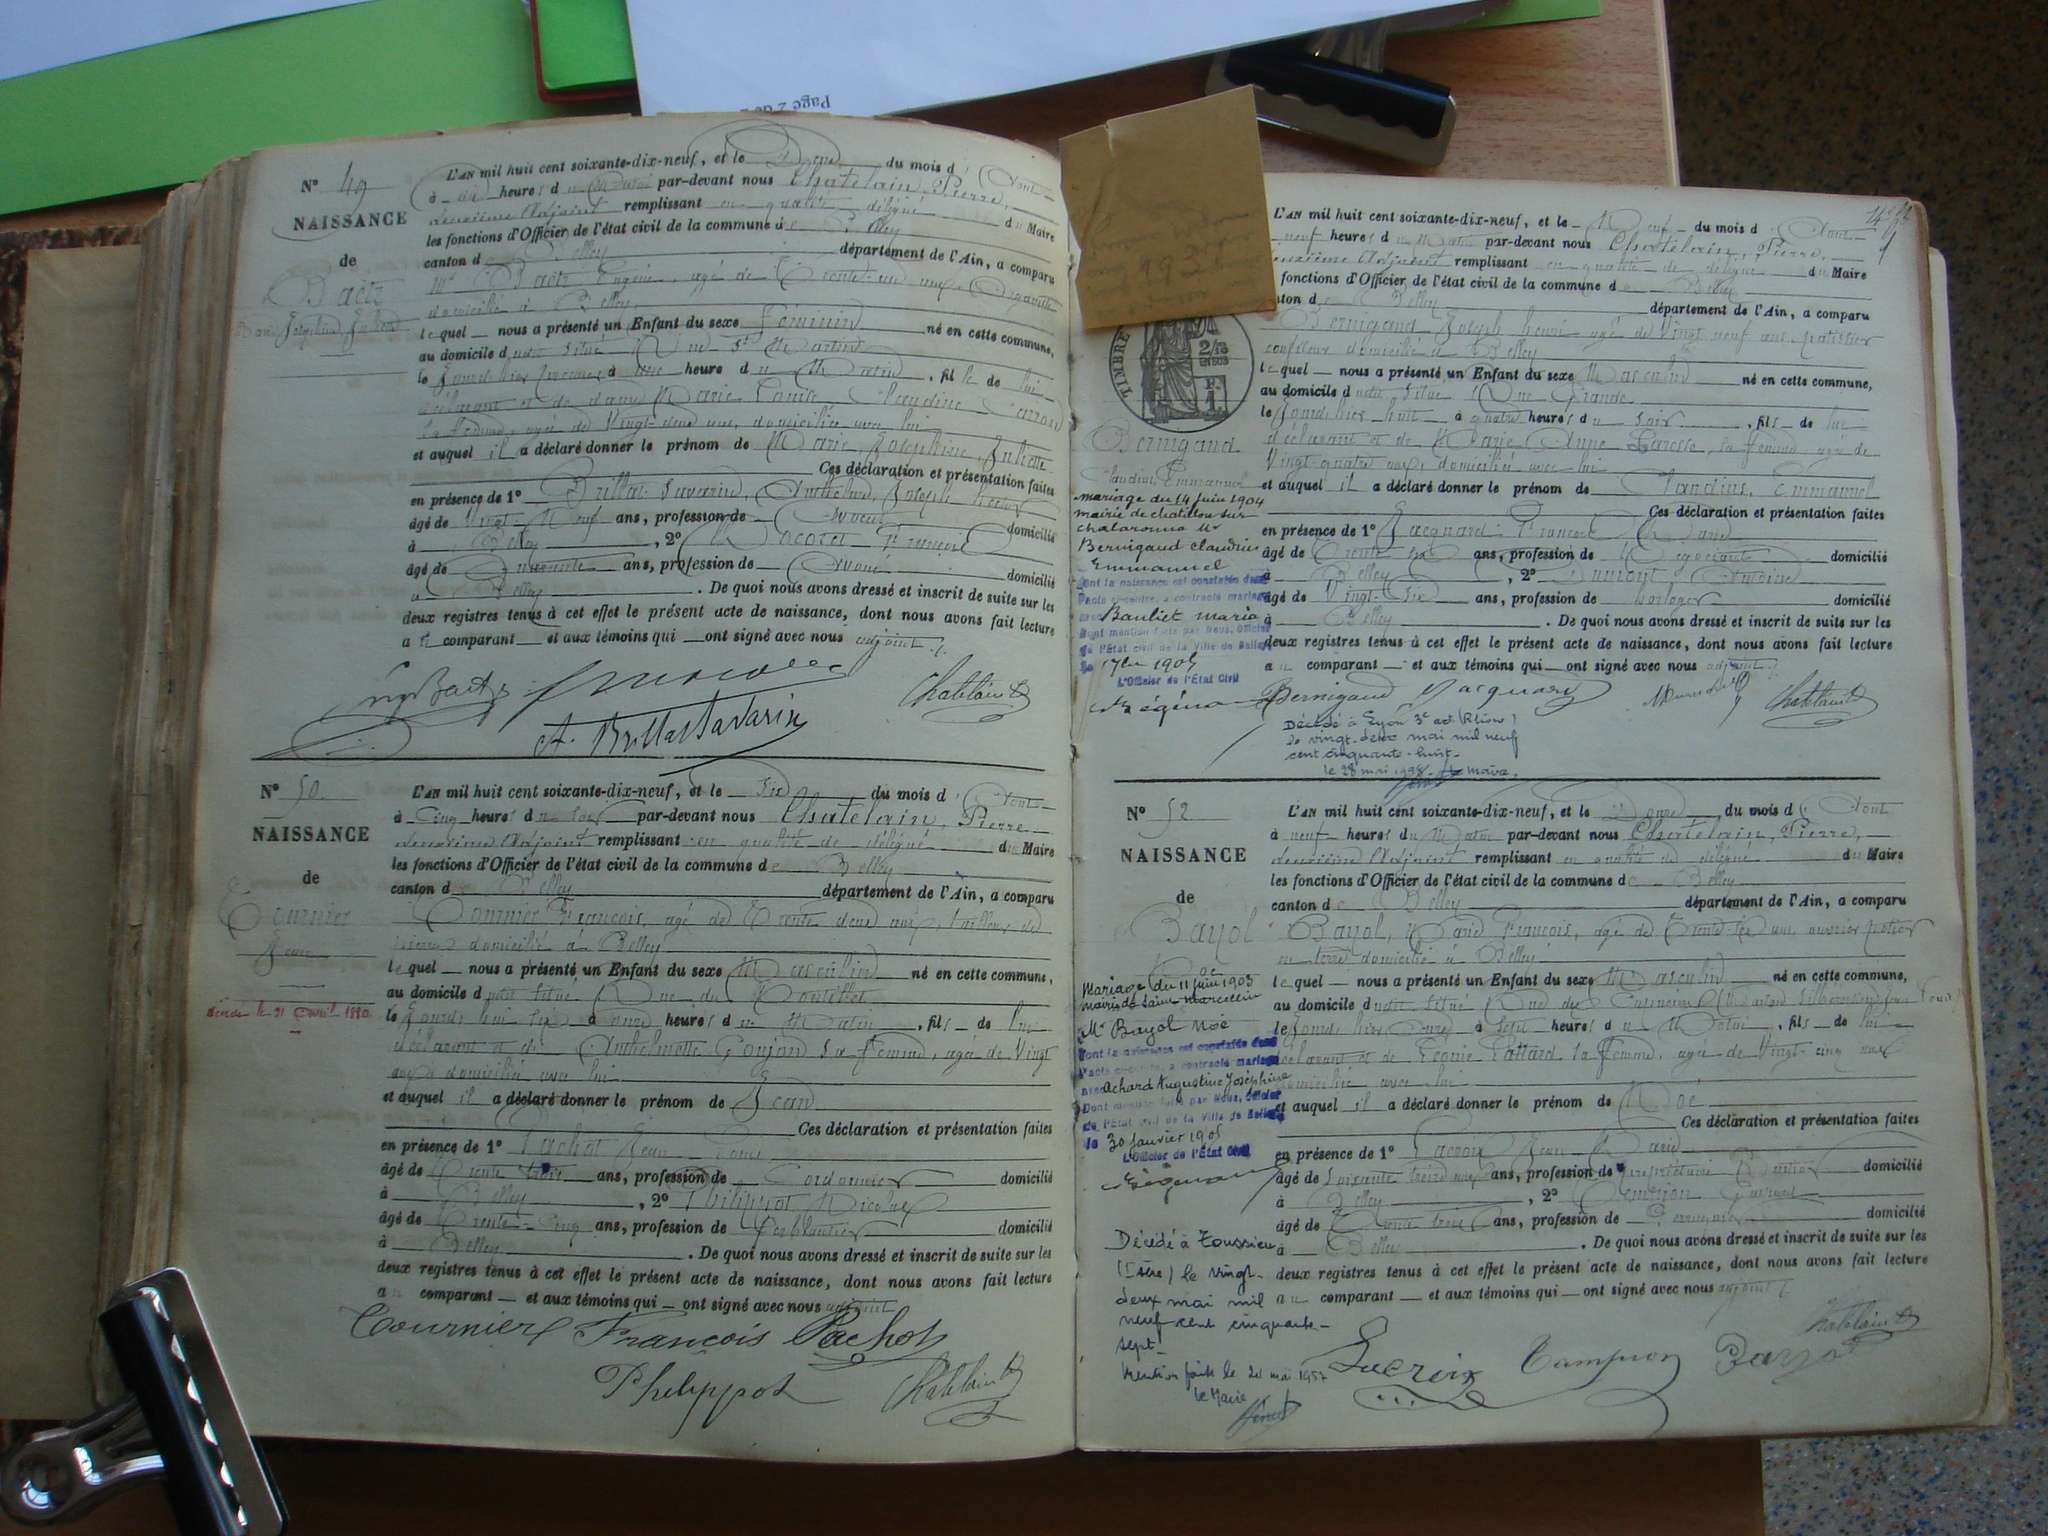 Page 2 de
N° 49
NAISSANCE
de
Baetz
Marie Joséphine Juliette
L'AN mil huit cent soixante-dix-neuf, et le du mois d' Août
à heures du Matin par-devant nous Chatelain, Pierre,
deuxième Adjoint remplissant en qualité de délégué du Maire
les fonctions d'Officier de l'état civil de la commune de Belley
canton de Belley département de l'Ain, a comparu
Mr Baetz Eugène, âgé de Trente-un ans,
domicilié à Belley
lequel nous a présenté un Enfant du sexe Féminin né en cette commune,
au domicile d situé Rue St Martin
le à une heure du Matin, fille de lui
déclarant et de dame Marie Louise Claudine Carron
sa femme, âgée de Vingt-deux ans, domiciliée avec lui
et auquel il a déclaré donner le prénom de Marie Joséphine Juliette
Ces déclaration et présentation faites
en présence de 1° Brillat-Savarin, Anthelme, Joseph
âgé de Vingt-Neuf ans, profession de Avocat domicilié
à Belley, 2° François
âgé de Quarante ans, profession de Avoué domicilié
à Belley. De quoi nous avons dressé et inscrit de suite sur les
deux registres tenus à cet effet le présent acte de naissance, dont nous avons fait lecture
au comparant et aux témoins qui ont signé avec nous adjoint
Eug Baetz
Chatelain
A. Brillat Savarin
N° 50
NAISSANCE
de
Tournier
Jean
décédé le 21 avril 1880
L'AN mil huit cent soixante-dix-neuf, et le Six du mois d' Août
à Cinq heures du Soir par-devant nous Chatelain, Pierre
deuxième Adjoint remplissant en qualité de délégué du Maire
les fonctions d'Officier de l'état civil de la commune de Belley
canton de Belley département de l'Ain, a comparu
Tournier François, âgé de Trente deux ans, tailleur de
pierres domicilié à Belley
lequel nous a présenté un Enfant du sexe Masculin né en cette commune,
au domicile d situé Rue du
le Jourd'hui six à onze heures du Matin, fils de lui
déclarant et de Anthelmette Goujon sa femme, âgée de Vingt
ans domiciliée avec lui
et auquel il a déclaré donner le prénom de Jean
Ces déclaration et présentation faites
en présence de 1° Pachot Jean
âgé de Trente trois ans, profession de Cordonnier domicilié
à Belley, 2° Philippot Nicolas
âgé de Trente-Cinq ans, profession de Ferblantier domicilié
à Belley. De quoi nous avons dressé et inscrit de suite sur les
deux registres tenus à cet effet le présent acte de naissance, dont nous avons fait lecture
au comparant et aux témoins qui ont signé avec nous adjoint
Tournier François Pachot
Philippot Chatelain
TIMBRE
Bernigaud
Claudius Emmanuel
mariage du 14 juin 1904
mairie de chatillon sur
chalaronne Mr
Bernigaud claudius
Emmanuel
Dont la naissance est constatée dans
l'acte ci-contre, a contracté mariage
avec Bauliet maria
Dont mention faite par Nous, Officier
de l'Etat civil de la Ville de Belley
1905
L'Officier de l'Etat Civil
L'AN mil huit cent soixante-dix-neuf, et le Neuf du mois d' Août
neuf heures du Matin par-devant nous Chatelain, Pierre,
deuxième Adjoint remplissant en qualité de délégué du Maire
fonctions d'Officier de l'état civil de la commune de Belley
canton de Belley département de l'Ain, a comparu
Bernigaud Joseph henri âgé de Vingt neuf ans, patissier
confiseur domicilié à Belley
lequel nous a présenté un Enfant du sexe Masculin né en cette commune,
au domicile d situé Rue Grande
le Jourd'hier huit à quatre heures du soir, fils de lui
déclarant et de Marie Anne sa femme âgée de
Vingt quatre ans, domiciliée avec lui
et auquel il a déclaré donner le prénom de Claudius, Emmanuel
Ces déclaration et présentation faites
en présence de 1° Jacquard François Marie
âgé de Trente six ans, profession de Négociant domicilié
à Belley, 2° Dumont Antoine
âgé de Vingt-Six ans, profession de horloger domicilié
à Belley. De quoi nous avons dressé et inscrit de suite sur les
deux registres tenus à cet effet le présent acte de naissance, dont nous avons fait lecture
au comparant et aux témoins qui ont signé avec nous adjoint
Bernigaud Jacquard Chatelain
Décédé à Lyon 3e art (Rhône)
le vingt-deux mai mil neuf
cent cinquante-huit
le 28 mai 1958 le maire.
N° 52
NAISSANCE
de
Bayol
Noé
Mariage du 11 juin 1903
mairie de Saint Marcellin
Mr Bayol Noé
Dont la naissance est constatée dans
l'acte ci-contre, a contracté mariage
avec Achard Augustine Joséphine
Dont mention faite par Nous, Officier
de l'Etat civil de la Ville de Belley
le 30 janvier 1905
L'Officier de l'Etat Civil
Décédé à Toussieu
(Isère) le vingt-
deux mai mil
neuf cent cinquante-
sept-
Mention faite le 24 mai 1957
le Maire
L'AN mil huit cent soixante-dix-neuf, et le Douze du mois d' Août
à neuf heures du Matin par-devant nous Chatelain, Pierre,
deuxième Adjoint remplissant en qualité de délégué du Maire
les fonctions d'Officier de l'état civil de la commune de Belley
canton de Belley département de l'Ain, a comparu
Bayol, Marie François, âgé de Trente ans, ouvrier potier
en terre domicilié à Belley
lequel nous a présenté un Enfant du sexe Masculin né en cette commune,
au domicile d situé Rue des
le Jourd'hier onze à Sept heures du Matin, fils de lui
déclarant et de sa femme, âgée de Vingt-cinq ans
domiciliée avec lui
et auquel il a déclaré donner le prénom de Noé
Ces déclaration et présentation faites
en présence de 1° Lacroix Jean Marie
âgé de Soixante treize ans, profession de propriétaire Rentier domicilié
à Belley, 2°
âgé de Trente trois ans, profession de domicilié
à Belley. De quoi nous avons dressé et inscrit de suite sur les
deux registres tenus à cet effet le présent acte de naissance, dont nous avons fait lecture
au comparant et aux témoins qui ont signé avec nous adjoint
Chatelain
Lacroix